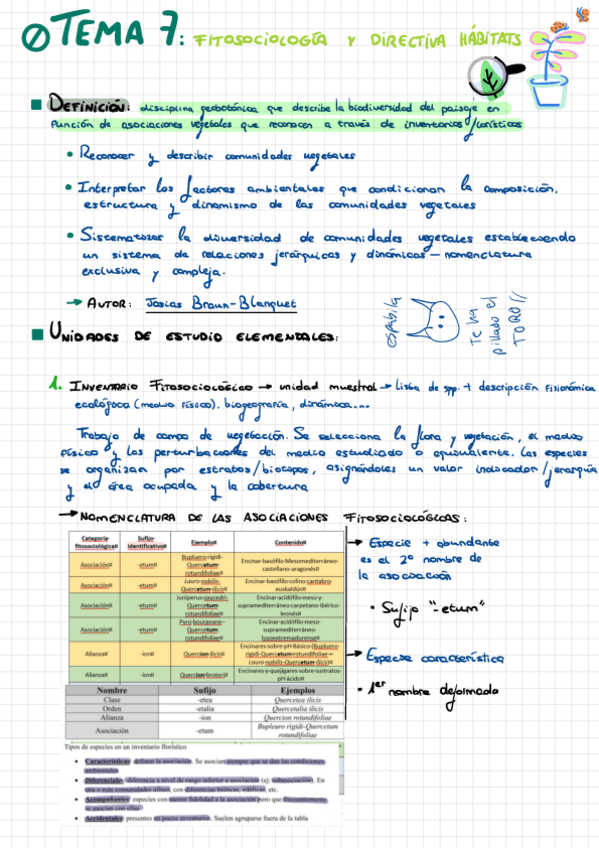 TEMA 7: FITOSOCIOLOGÍA Y DIRECTIVA HÁBITATS
DEFINICIÓN: disciplina geobotánica que describe la biodiversidad del paisaje en
función de asociaciones vegetales que reconocen a través de inventarios florísticos
• Reconocer y describir comunidades vegetales
• Interpretar los factores ambientales que condicionan la composición,
estructura y dinamismo de las comunidades vegetales
• Sistematizar la diversidad de comunidades vegetales estableciendo
un sistema de relaciones jerárquicas y dinámicas – nomenclatura
exclusiva y compleja.
→ AUTOR: Josias Braun-Blanquet
espabila
te ha
pillado el
TORO!!
UNIDADES DE ESTUDIO ELEMENTALES:
1. INVENTARIO FITOSOCIOLÓGICO → unidad muestral → lista de spp. + descripción fisionómica
ecológica (medio físico). biogeografía, dinámica...
Trabajo de campo de vegetación. Se selecciona la flora y vegetación, el medio
físico y las perturbaciones del medio estudiado o equivalente. Las especies
se organizan por estratos/biotopos, asignándoles un valor indicador/jerarquía
y el área ocupada y la cobertura
→ NOMENCLATURA DE LAS ASOCIACIONES FITOSOCIOLÓGICAS:
Categoría fitosociológica Sufijo identificativo Ejemplo Contenido
Asociación -etum Bupleuro-rigidi-Quercetum rotundifoliae Encinar-basófilo-Mesomediterráneo-castellano-aragonés
Asociación -etum Lauro-nobilis-Quercetum-ilicis Encinar-basófilo-colino-cantabro-euskaldún
Asociación -etum Quercetum rotundifoliae Encinar-acidófilo-meso-y-supramediterráneo-carpetano-ibérico-leonés
Asociación -etum Pyro-bourgaeanae-Quercetum rotundifoliae Encinar-acidófilo-meso-supramediterráneo-lusoextremadurense
Alianza -ion Quercion-ilicis Encinares-sobre-pH-Básico-(Bupleuro-rigidi-Quercetum-rotundifoliae-+-Lauro-nobilis-Quercetum-ilicis)
Alianza -ion Quercion-broteri Encinares-y-quejigares-sobre-sustratos-pH-ácido
→ Especie + abundante
es el 2º nombre de
la asociación
• Sufijo "-etum"
→ Especie característica
• 1er nombre deformado
Nombre Sufijo Ejemplos
Clase -etea Quercetea ilicis
Orden -etalia Quercetalia ilicis
Alianza -ion Quercion rotundifoliae
Asociación -etum Bupleuro rigidi-Quercetum rotundifoliae
Tipos de especies en un inventario florístico
• Características: definen la asociación. Se asocian siempre que se dan las condiciones
ambientales
• Diferenciales: diferencia a nivel de rango inferior a asociación (ej: subasociación). En
una o más comunidades afines, con diferencias bióticas, edáficas, etc.
• Acompañantes: especies con menor fidelidad a la asociación pero que frecuentemente
se asocian con ellas
• Accidentales: presentes en pocos inventarios. Suelen agruparse fuera de la tabla